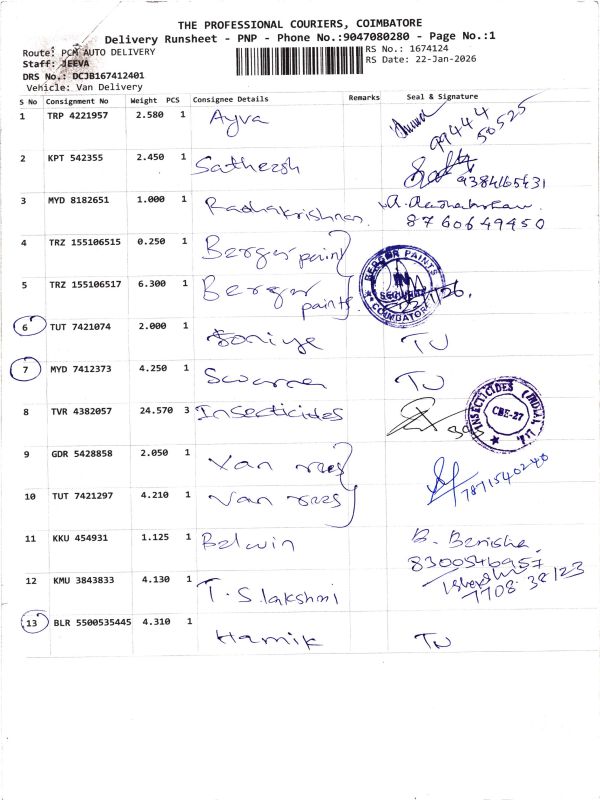 THE PROFESSIONAL COURIERS, COIMBATORE
Delivery Runsheet - PNP - Phone No.:9047080280 - Page No.:1
Route: PCM AUTO DELIVERY
RS No.: 1674124
Staff: JEEVA
RS Date: 22-Jan-2026
DRS No.: DCJB167412401
Vehicle: Van Delivery
S No Consignment No Weight PCS Consignee Details Remarks Seal & Signature
1 TRP 4221957 2.580 1 Ayva 99444 50525
2 KPT 542355 2.450 1 Satheesh 9384165431
3 MYD 8182651 1.000 1 Radhakrishnan
8760649450
4 TRZ 155106515 0.250 1 Berger paint
5 TRZ 155106517 6.300 1 Berger paints
BERGER PAINTS SECURITY COIMBATORE
6 TUT 7421074 2.000 1 Soniya TU
7 MYD 7412373 4.250 1 Swarna TU
8 TVR 4382057 24.570 3 Insecticides
INSECTICIDES (INDIA) Lt. CBE-27
9 GDR 5428858 2.050 1 Van
10 TUT 7421297 4.210 1 Van
7871540240
11 KKU 454931 1.125 1 Belwin B. Benisha
8300546957
12 KMU 3843833 4.130 1 T.S.lakshmi
7708 38123
13 BLR 5500535445 4.310 1 Hamik TU